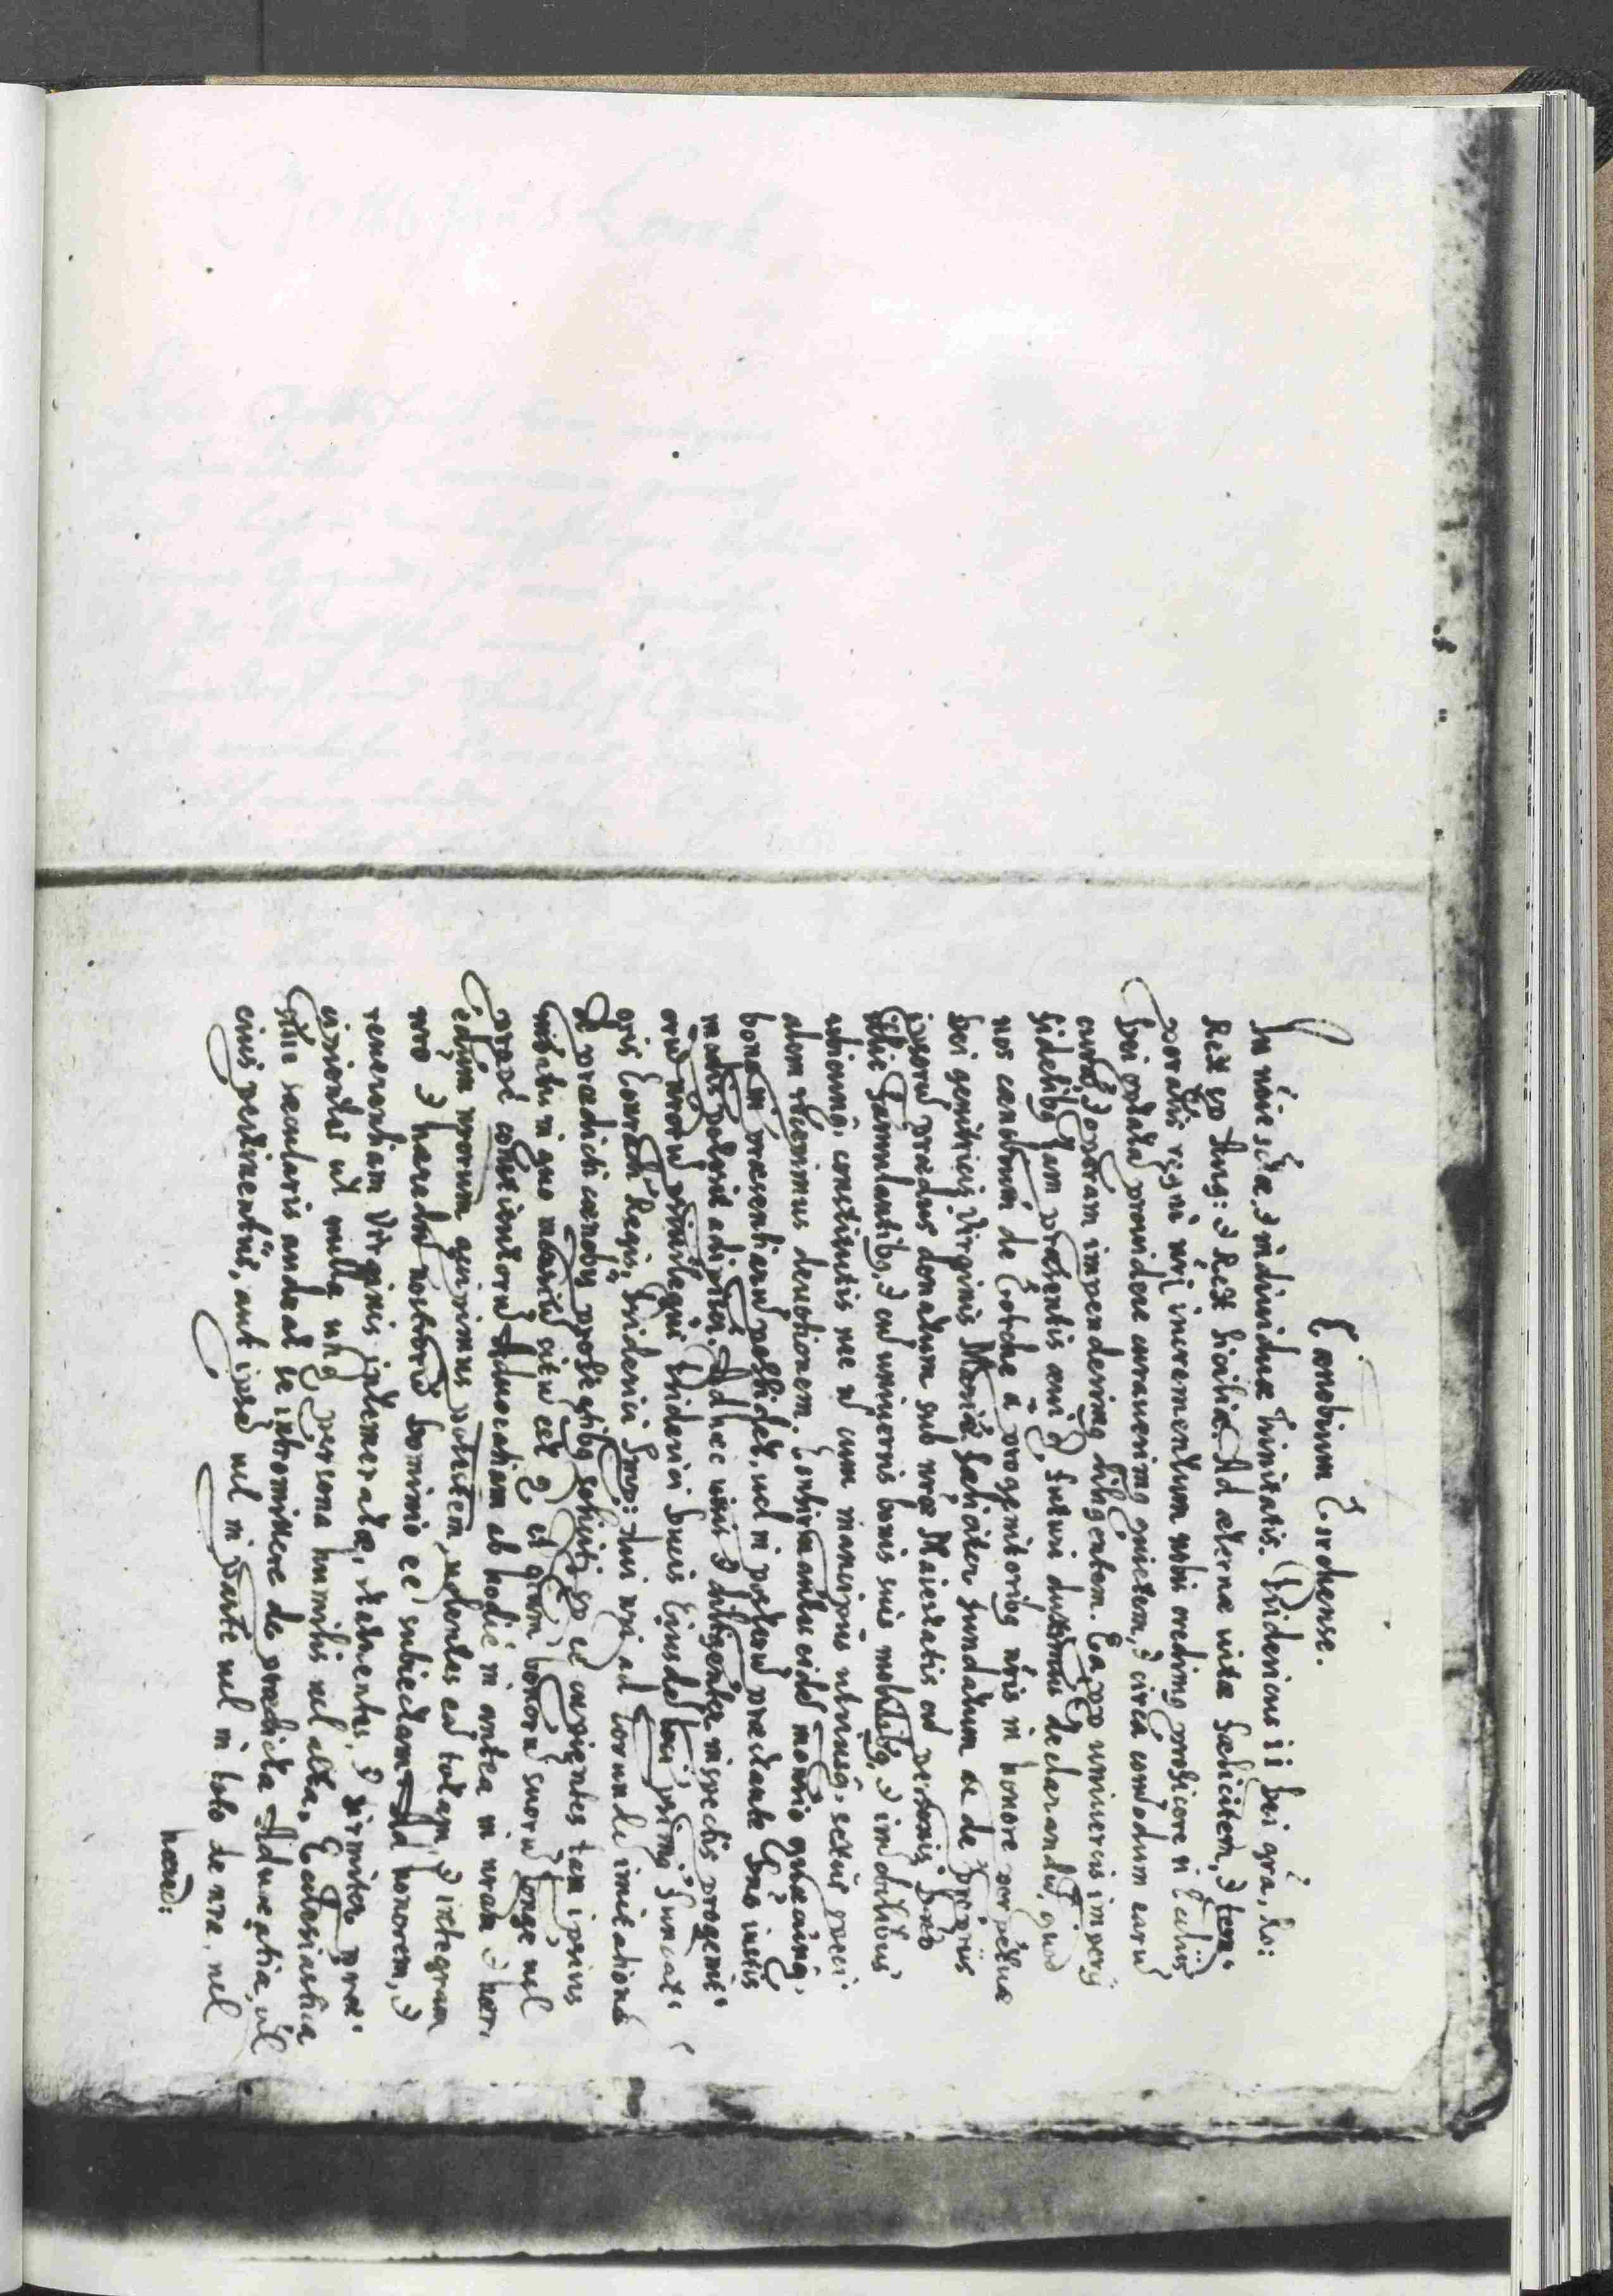 Cænobium Lorchense.
In nõie sctæ, & indiuiduæ trinitatis. Fridericus ii Dei grã, Ro:
Rex sp Aug: & Rex Siciliæ. Ad æternæ vitæ fælicitem, & tem-
poralis regni nri incrementum nobis credimg proficere si Ecclijs
Dei optata prouidere curauerimg quietem, & circa comodum earu
curas & operam impenderimg diligentem. Ea pp uniuersis imperij
fidelibg tam præsentis æui q̃ futuri duximus declarandu, quod
nos cænobium de Lorche a progenitoribg nris in honore perpetuæ
Dei genitricis Virginis Mariæ faeliciter fundatum ac de proprijs
ipsoru prædijs donatum sub nræ Maiestatis cu personis Dno
illic famulantibg, & cu uniuersis bonis suis mobilibg, & imobilibus
ubicunq, constitutis nec no cum mancipijs utriusq, sexus speci
alem recepimus deuotionem. Confirmantes eidẽ monrio quæcunq,
bona in præsentiaru possidet, uel in posteru præstante Dno iustis
modis poterit adipisci. Ad hæc uisis & diligenter inspectis progenit-
oru nroru priuilegijs Friderici Ducis Eiusdẽ loci primg Fundat-
oris Conradi Regis, Friderici Imp: Aui nri ad eorundẽ imitationẽ
& prædicti cænobij
mitatibu in quo monriu situ est q
prope consistentoru Aduocatiam ab hodie in antea in nram & hær-
edum nrorum accipimus potestatem, uolentes eã totam, & integram
nro & hæredu nostroru Dominio eẽ subiectam. Ad honorem, &
reuerentiam Virginis intemeratæ, statuentes, & firmiter præ-
cipientes ut nulla unq persona humilis uel alta, Ecclesiastica
siue sæcularis audeat se intromittere de prædicta Aduocatia, uel
eius pertinentijs, aut ipsã uel in parte uel in toto de nra, uel
hæred: